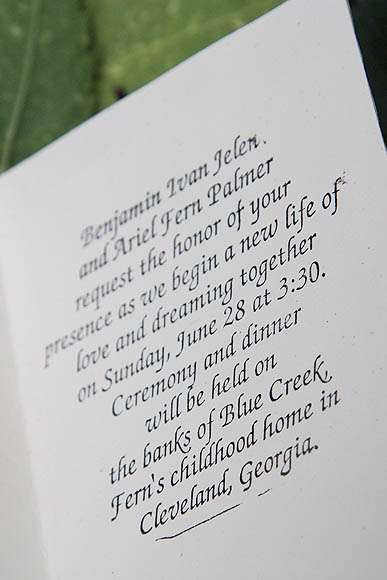 Benjamin Ivan Jelen
and Ariel Fern Palmer
request the honor of your
presence as we begin a new life of
love and dreaming together
on Sunday, June 28 at 3:30.
Ceremony and dinner
will be held on
the banks of Blue Creek,
Fern's childhood home in
Cleveland, Georgia.